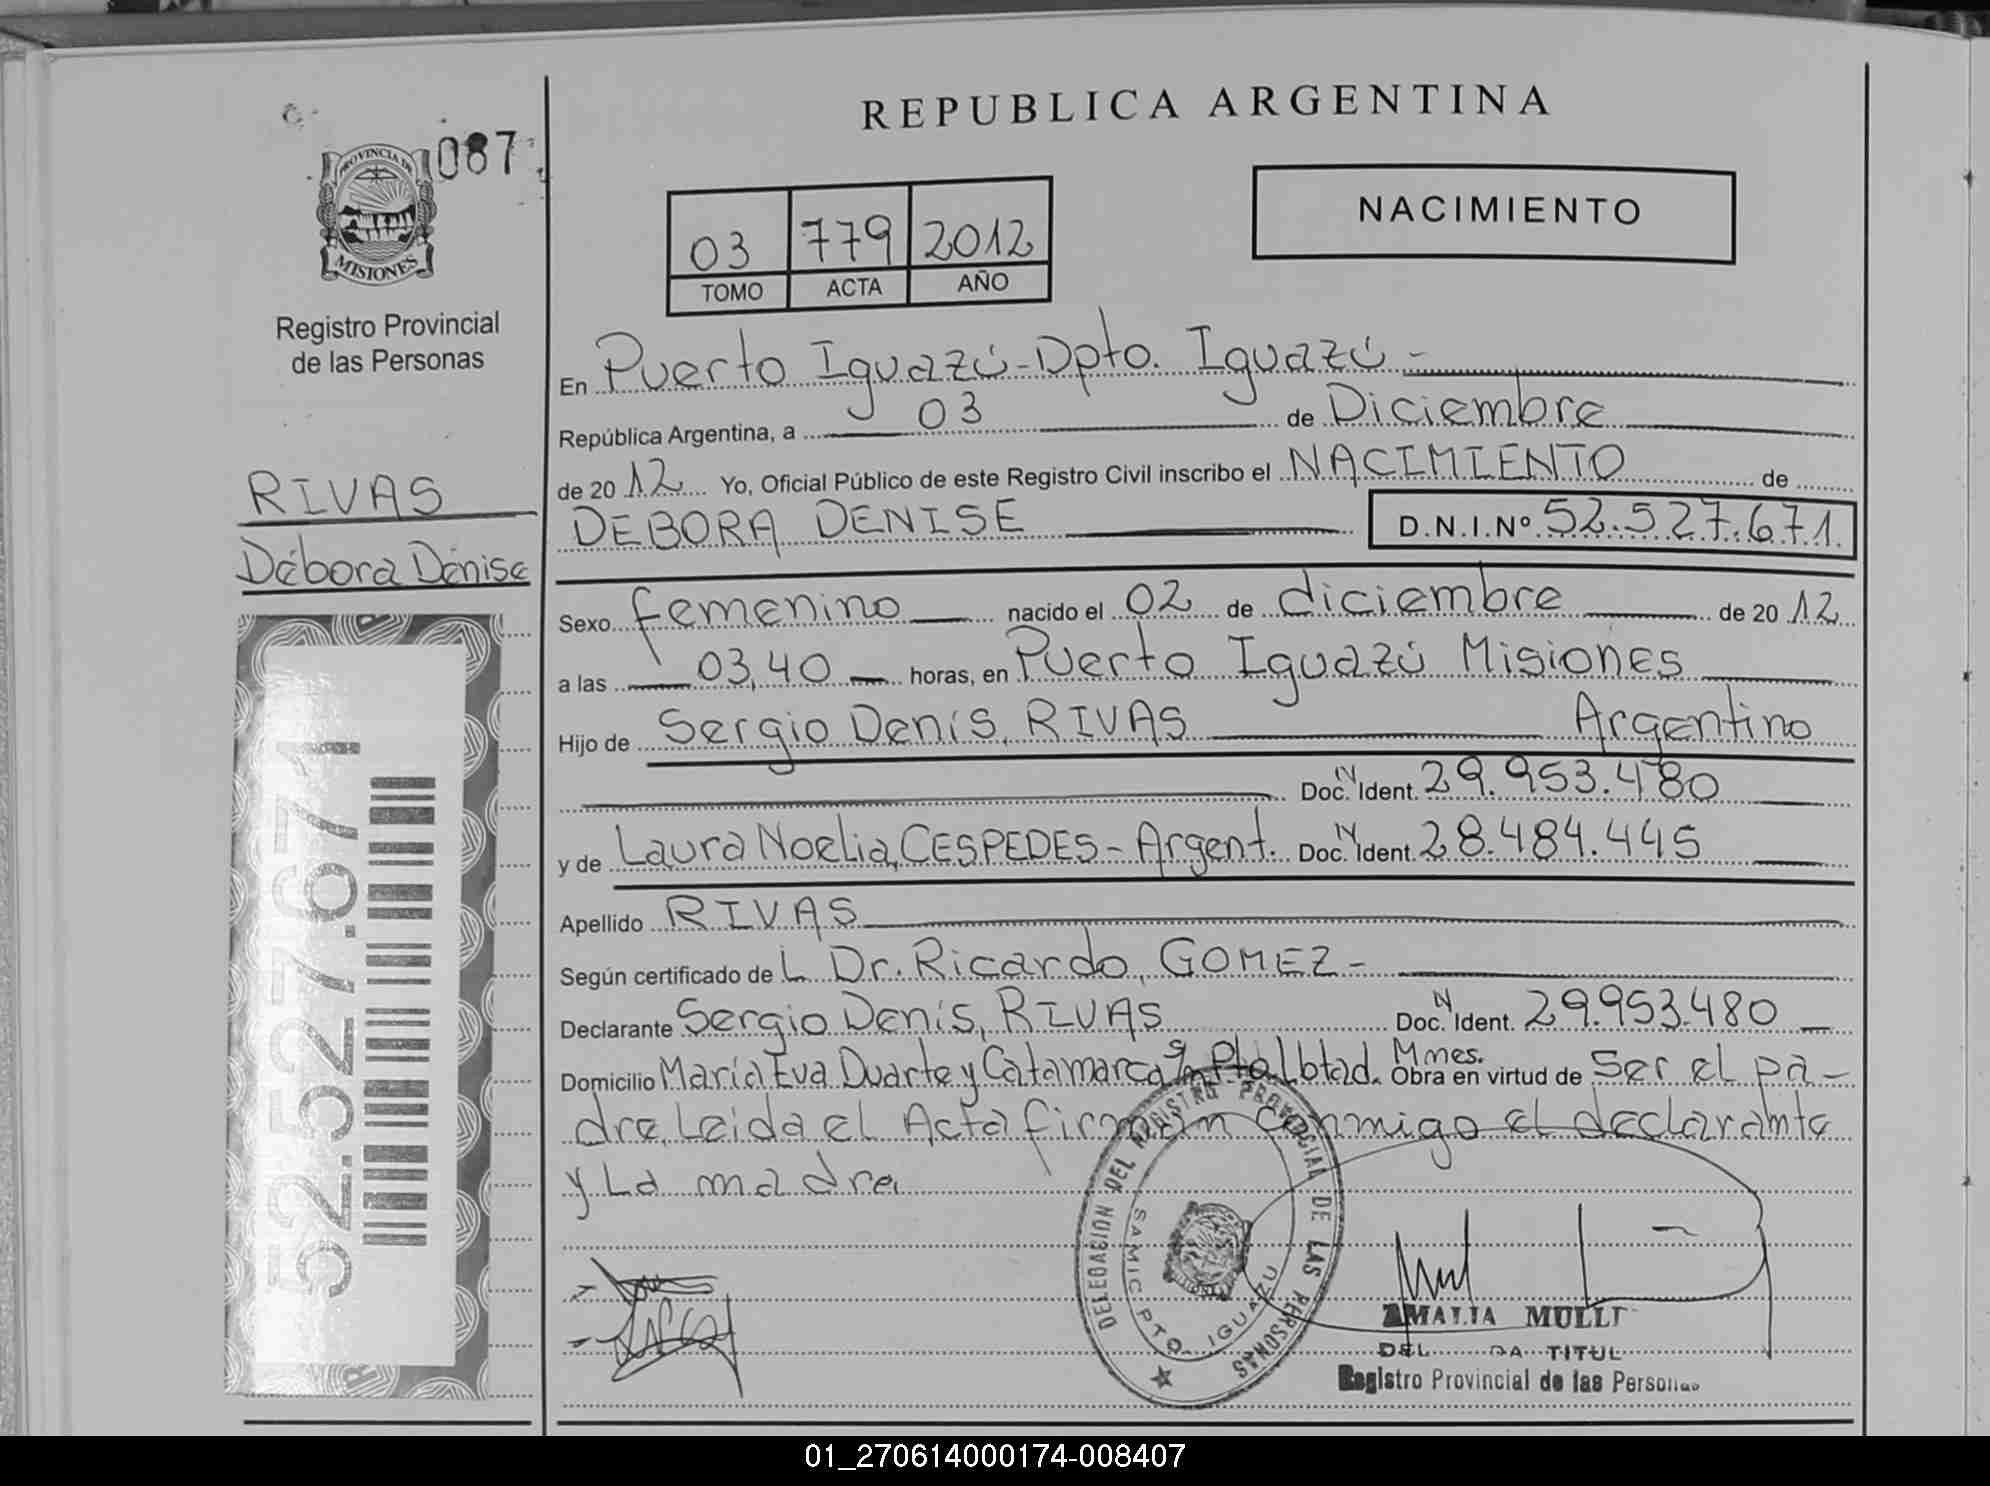 REPUBLICA ARGENTINA
087
PROVINCIA DE
MISIONES
Registro Provincial
de las Personas
03 779 2012
TOMO ACTA AÑO
NACIMIENTO
En Puerto Iguazú-Dpto. Iguazú-
República Argentina, a 03 de Diciembre
de 2012 Yo, Oficial Público de este Registro Civil inscribo el NACIMIENTO de
DEBORA DENISE D.N.I.Nº 52.527.671
RIVAS
Débora Denise
52.527.671
Sexo femenino nacido el 02 de diciembre de 2012
a las 03,40 horas, en Puerto Iguazú Misiones
Hijo de Sergio Denis, RIVAS Argentino
Doc. N Ident. 29.953.480
y de Laura Noelia, CESPEDES - Argent. Doc. N Ident. 28.484.445
Apellido RIVAS
Según certificado de L Dr. Ricardo, GOMEZ-
Declarante Sergio Denis, RIVAS Doc. N Ident. 29.953.480
Domicilio María Eva Duarte y Catamarca Pto Lbtad. Mnes. Obra en virtud de Ser el pa-
dre, Leida el Acta firman conmigo el declarante
y La madre.
DELEGACION DEL REGISTRO PROVINCIAL DE LAS PERSONAS
SAMIC PTO. IGUAZU
AMALIA
TITUL
Registro Provincial de las Personas
01_270614000174-008407